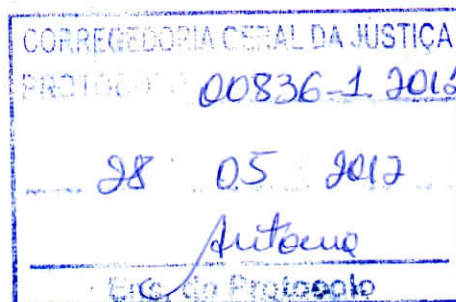 CORREGEDORIA GERAL DA JUSTIÇA
PROTOCOLO 00836-1 2012
28 05 2012
Antonia
Enc. do Protocolo